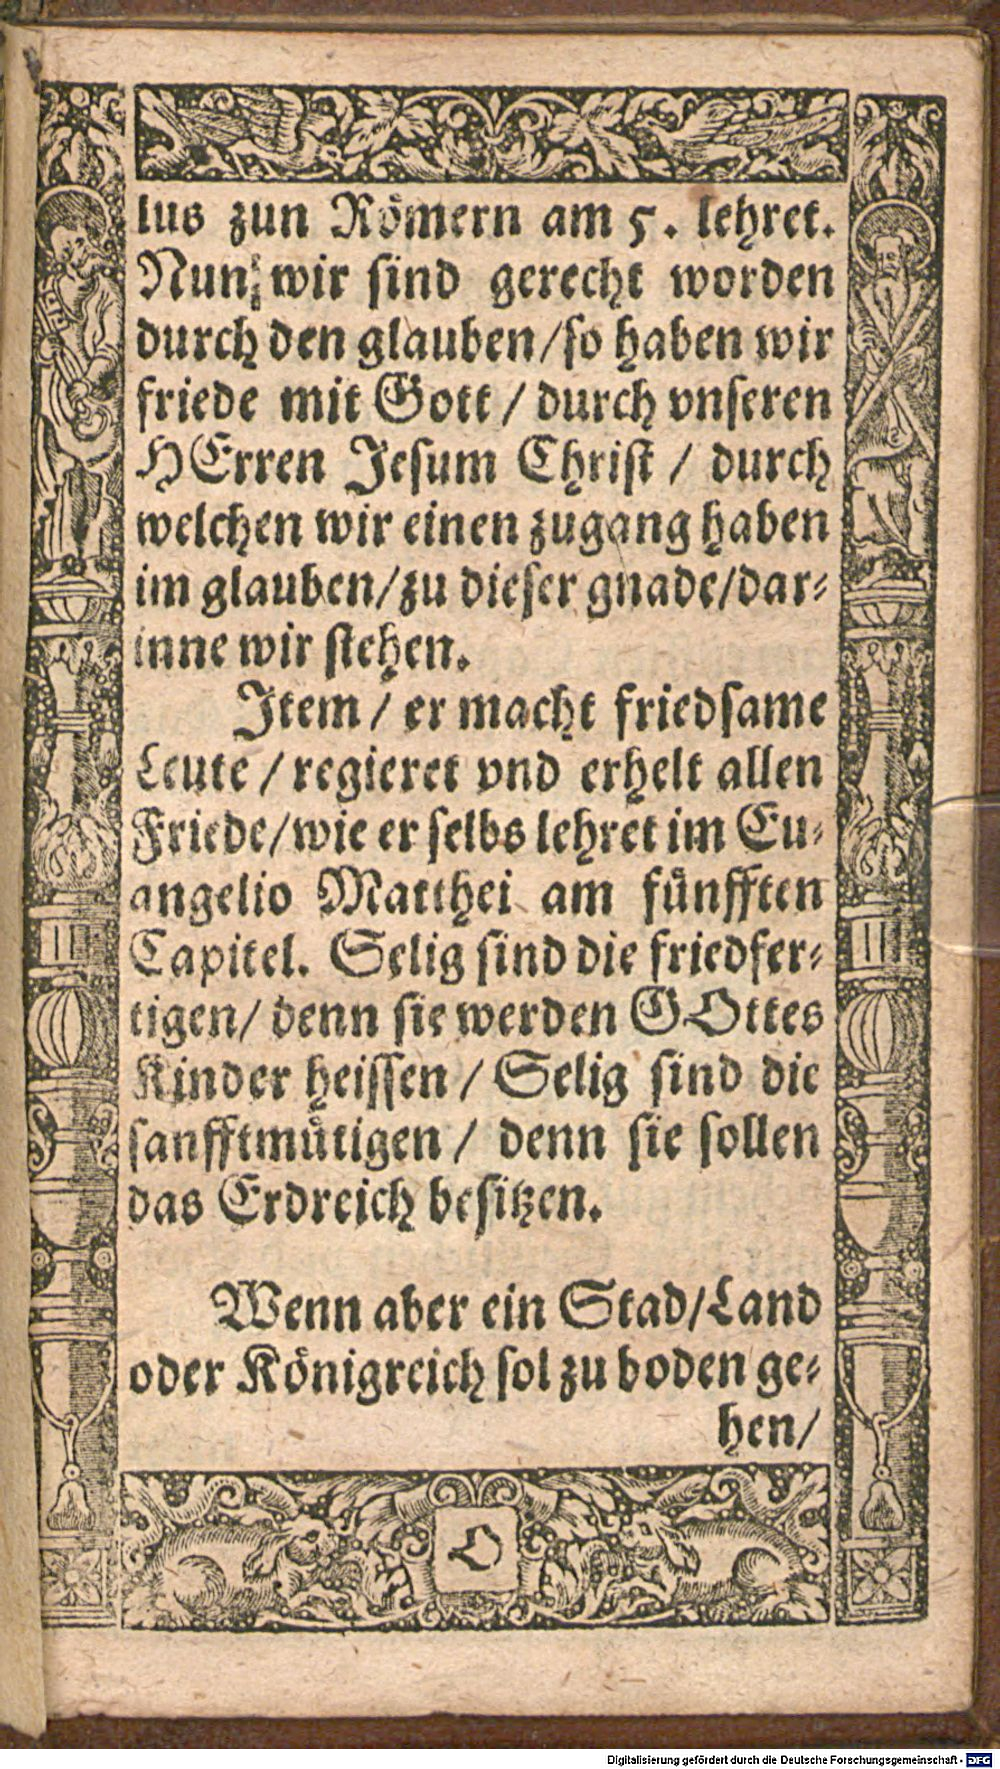 lus zun Römern am 5. lehret.
Nun wir sind gerecht worden
durch den glauben/so haben wir
friede mit Gott / durch vnseren
HErren Jesum Christ / durch
welchen wir einen zugang haben
im glauben/zu dieser gnade/dar⸗
inne wir stehen.
Item / er macht friedsame
Leute / regieret vnd erhelt allen
Friede/wie er selbs lehret im Eu⸗
angelio Matthei am fünfften
Capitel. Selig sind die friedfer⸗
tigen/ denn sie werden GOttes
Kinder heissen / Selig sind die
sanfftmütigen / denn sie sollen
das Erdreich besitzen.
Wenn aber ein Stad/Land
oder Königreich sol zu boden ge⸗
hen/
O
Digitalisierung gefördert durch die Deutsche Forschungsgemeinschaft - DFG